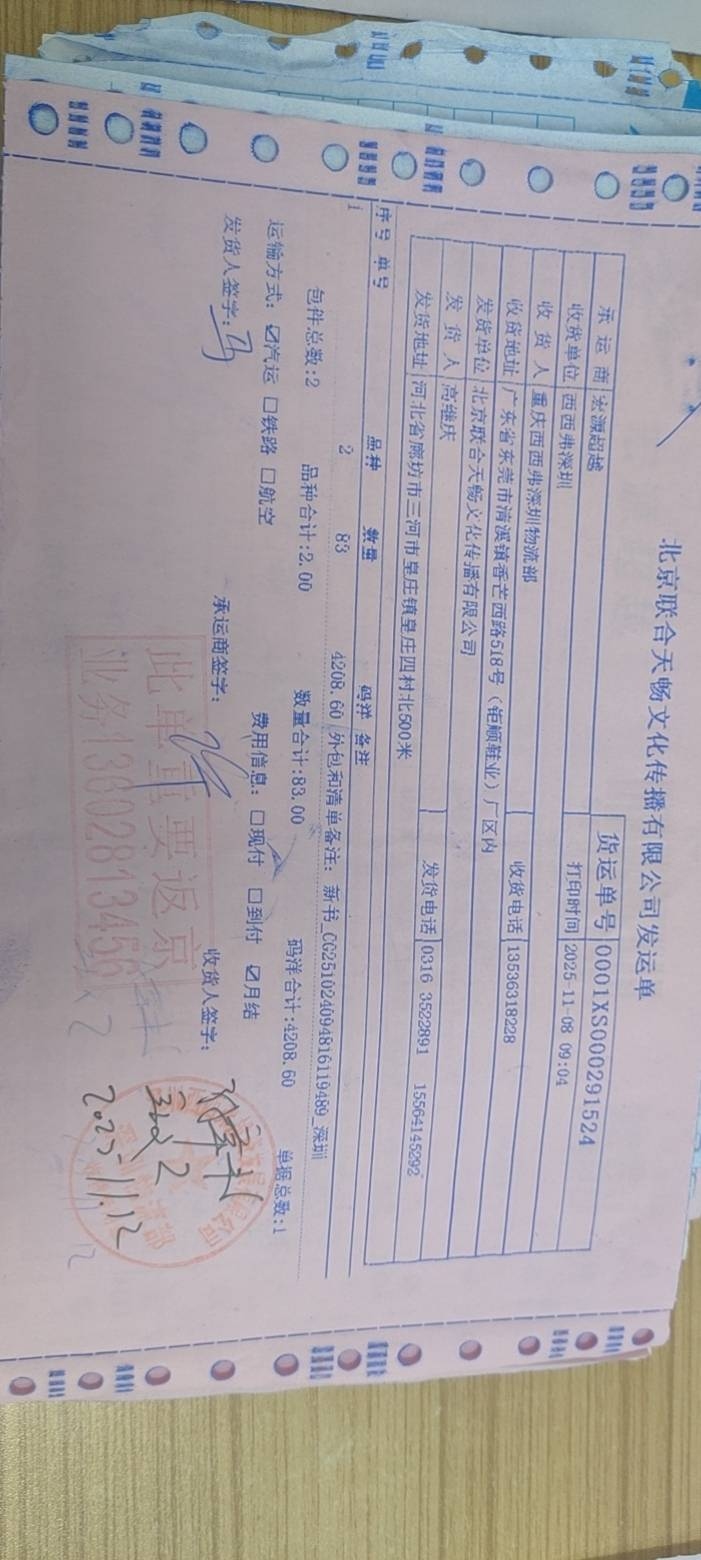 北京联合天畅文化传播有限公司发运单
货运单号 0001XS000291524
承运商 宏源超越
打印时间 2025-11-08 09:04
收货单位 西西弗深圳
收货人 重庆西西弗深圳物流部
收货电话 13536318228
收货地址 广东省东莞市清溪镇香芒西路518号（钜顺鞋业）厂区内
发货单位 北京联合天畅文化传播有限公司
发货人 高继庆
发货电话 0316 3522891 15564145292
发货地址 河北省廊坊市三河市皇庄镇皇庄四村北500米
序号 单号 品种 数量 码洋 备注
1 2 83 4208.60 外包和清单备注: 新书_CG251024094816119489_深圳
包件总数:2 品种合计:2.00 数量合计:83.00 码洋合计:4208.60 单据总数:1
运输方式: ☑汽运 □铁路 □航空 费用信息: □现付 □到付 ☑月结
发货人签字: 马 承运商签字: 收货人签字:
实收2
2025-11.12
此单重要返京
业务13602813456